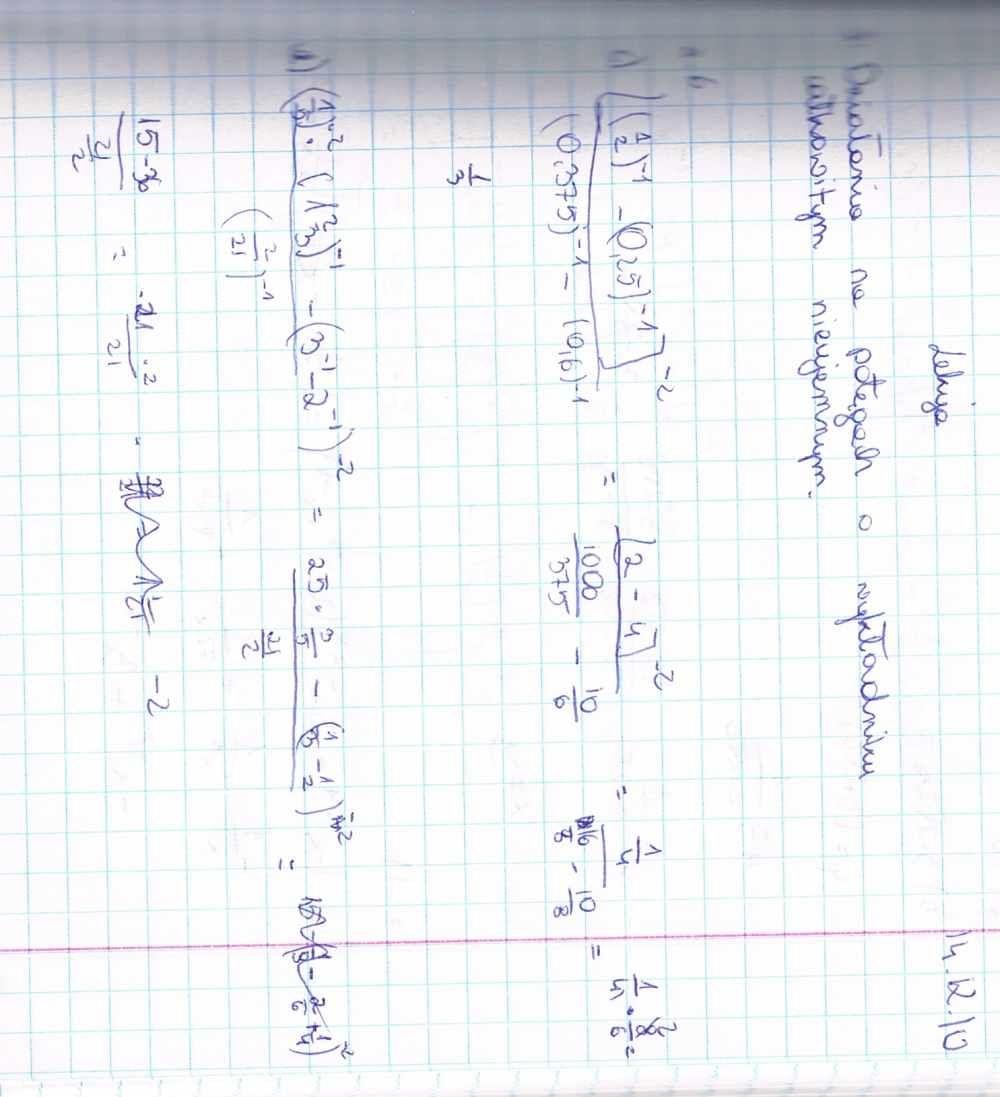 Lekcja 14.12.10
Działania na potęgach o wykładniku
całkowitym nieujemnym.
c) [(1/2)^-1 - (0,25)^-1]^-2 / ((0,375)^-1 - (0,6)^-1) = [2 - 4]^-2 / (1000/375 - 10/6) = 1/4 / (16/8 - 10/8) = 1/4 · 8/6
1/3
d) ((1/5)^-2 · (1 2/3)^-1 - (3^-1 - 2^-1)^-2) / (2/21)^-1 = (25 · 3/5 - (1/3 - 1/2)^-2) / (21/2) =
(15 - 36) / (21/2) = -21 · 2/21 = -2